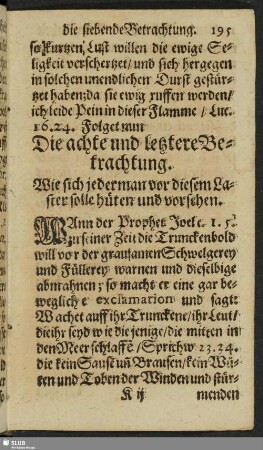 die siebende Betrachtung. 195
so kurtzen Lust willen die ewige Se-
ligkeit verschertzet/ und sich hergegen
in solchen unendlichen Durst gestür-
tzet haben; da sie ewig ruffen werden/
ich leide Pein in dieser Flamme / Luc.
16. 24. Folget nun
Die achte und letztere Be-
trachtung.
Wie sich jederman vor diesem La-
ster solle hüten und vorsehen.
WAnn der Prophet Joel c. 1. 5.
zu seiner Zeit die Trunckenbold
will vor der grausamen Schwelgerey
und Füllerey warnen und dieselbige
abmahnen; so macht er eine gar be-
wegliche exclamation und sagt:
Wachet auff ihr Trunckene/ ihr Leut/
die ihr seyd wie die jenige/ die mitten in
dem Meer schlaffẽ / Sprichw 23. 24.
die kein Sausẽ uñ Brausen/ kein Wü-
ten und Toben der Winden und stür-
K ij menden
SLUB